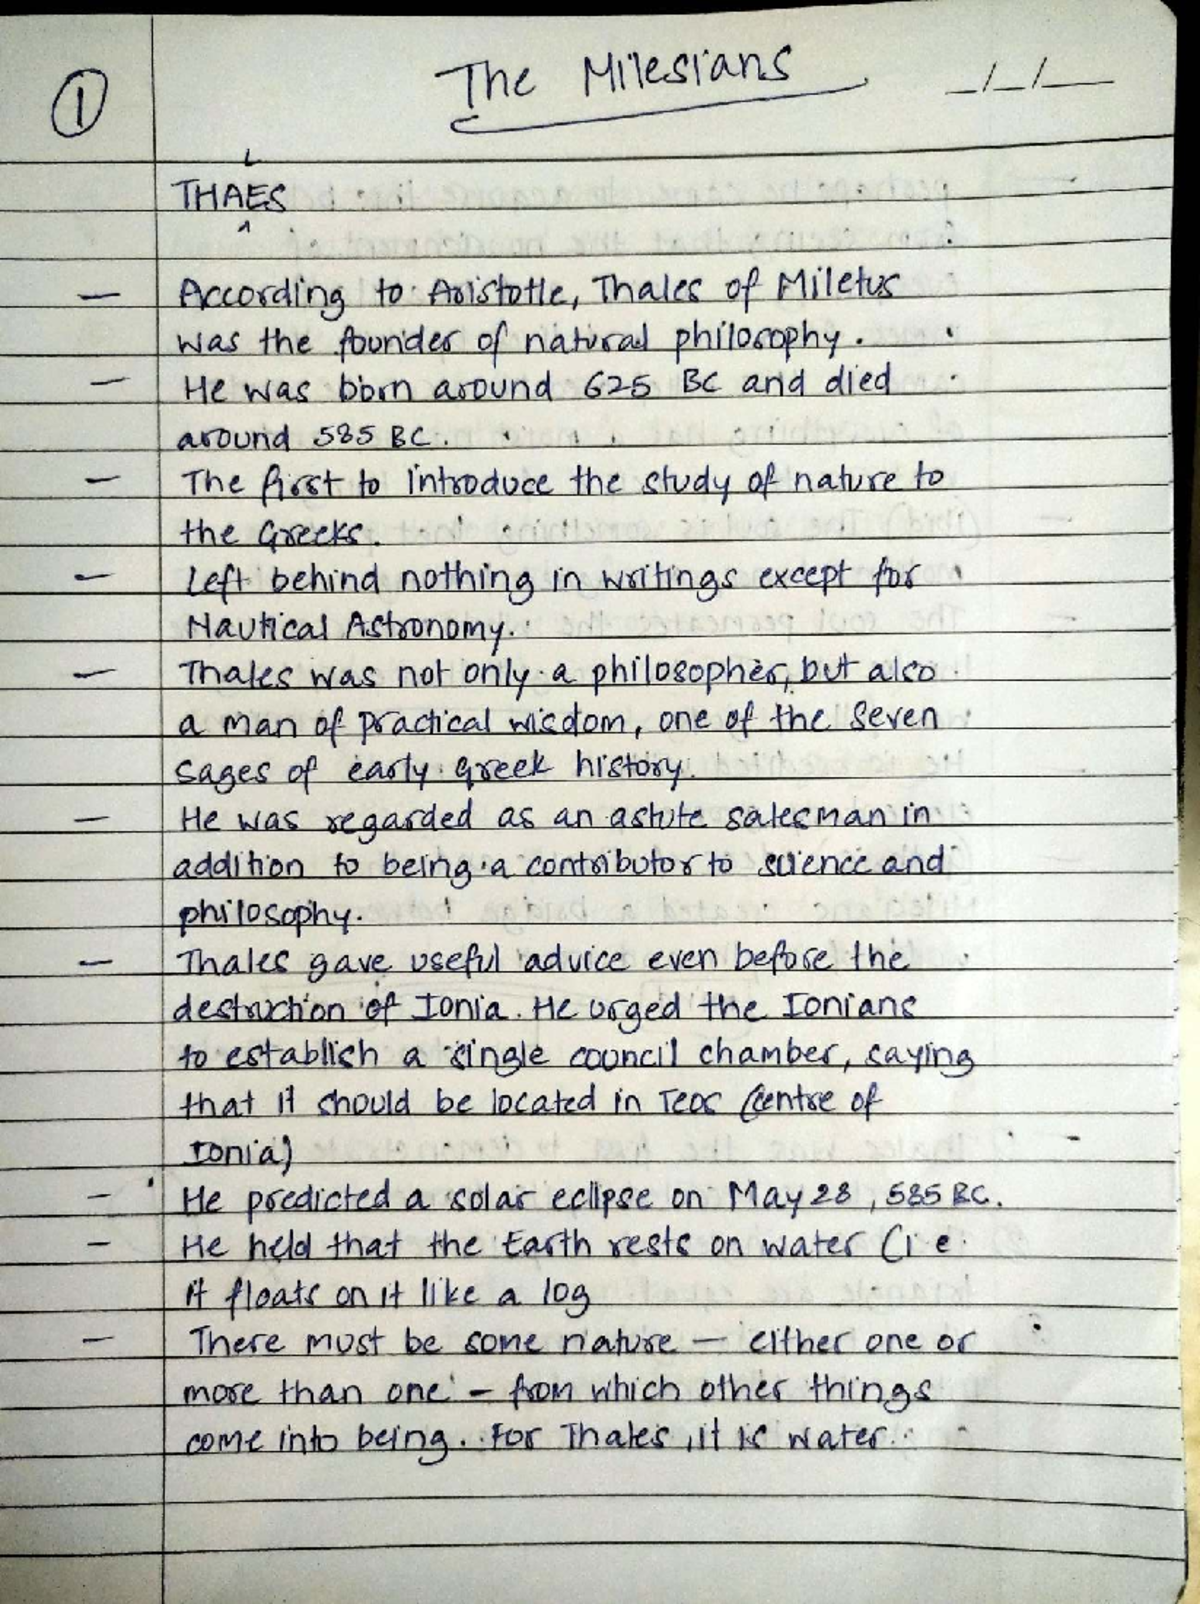 ①
The Milesians
_/_/__
THALES
— According to Aristotle, Thales of Miletus
was the founder of natural philosophy.
— He was born around 625 BC and died
around 585 BC.
— The first to introduce the study of nature to
the Greeks.
— Left behind nothing in writings except for
Nautical Astronomy.
— Thales was not only a philosopher, but also
a man of practical wisdom, one of the Seven
Sages of early Greek history.
— He was regarded as an astute salesman in
addition to being a contributor to science and
philosophy.
— Thales gave useful advice even before the
destruction of Ionia. He urged the Ionians
to establish a single council chamber, saying
that it should be located in Teos (centre of
Ionia)
— He predicted a solar eclipse on May 28, 585 BC.
— He held that the Earth rests on water (i.e.
it floats on it like a log
— There must be some nature — either one or
more than one — from which other things
come into being. For Thales, it is water.